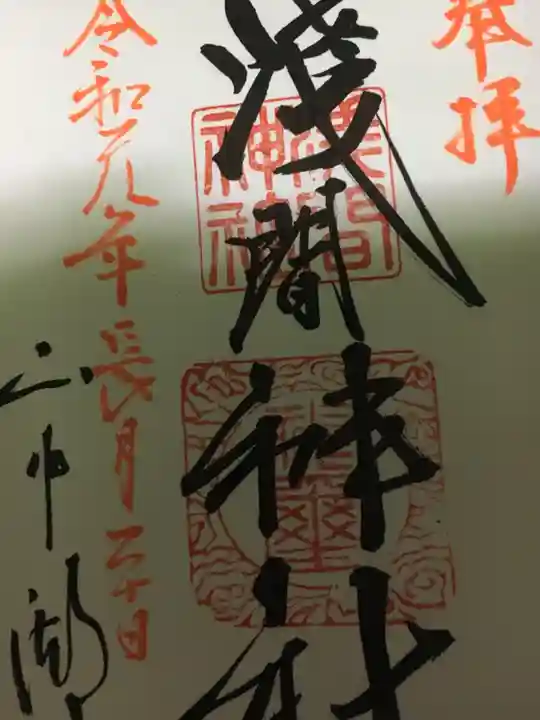 奉拝
淺間神社
淺間神社
令和元年長月二十日
山中湖